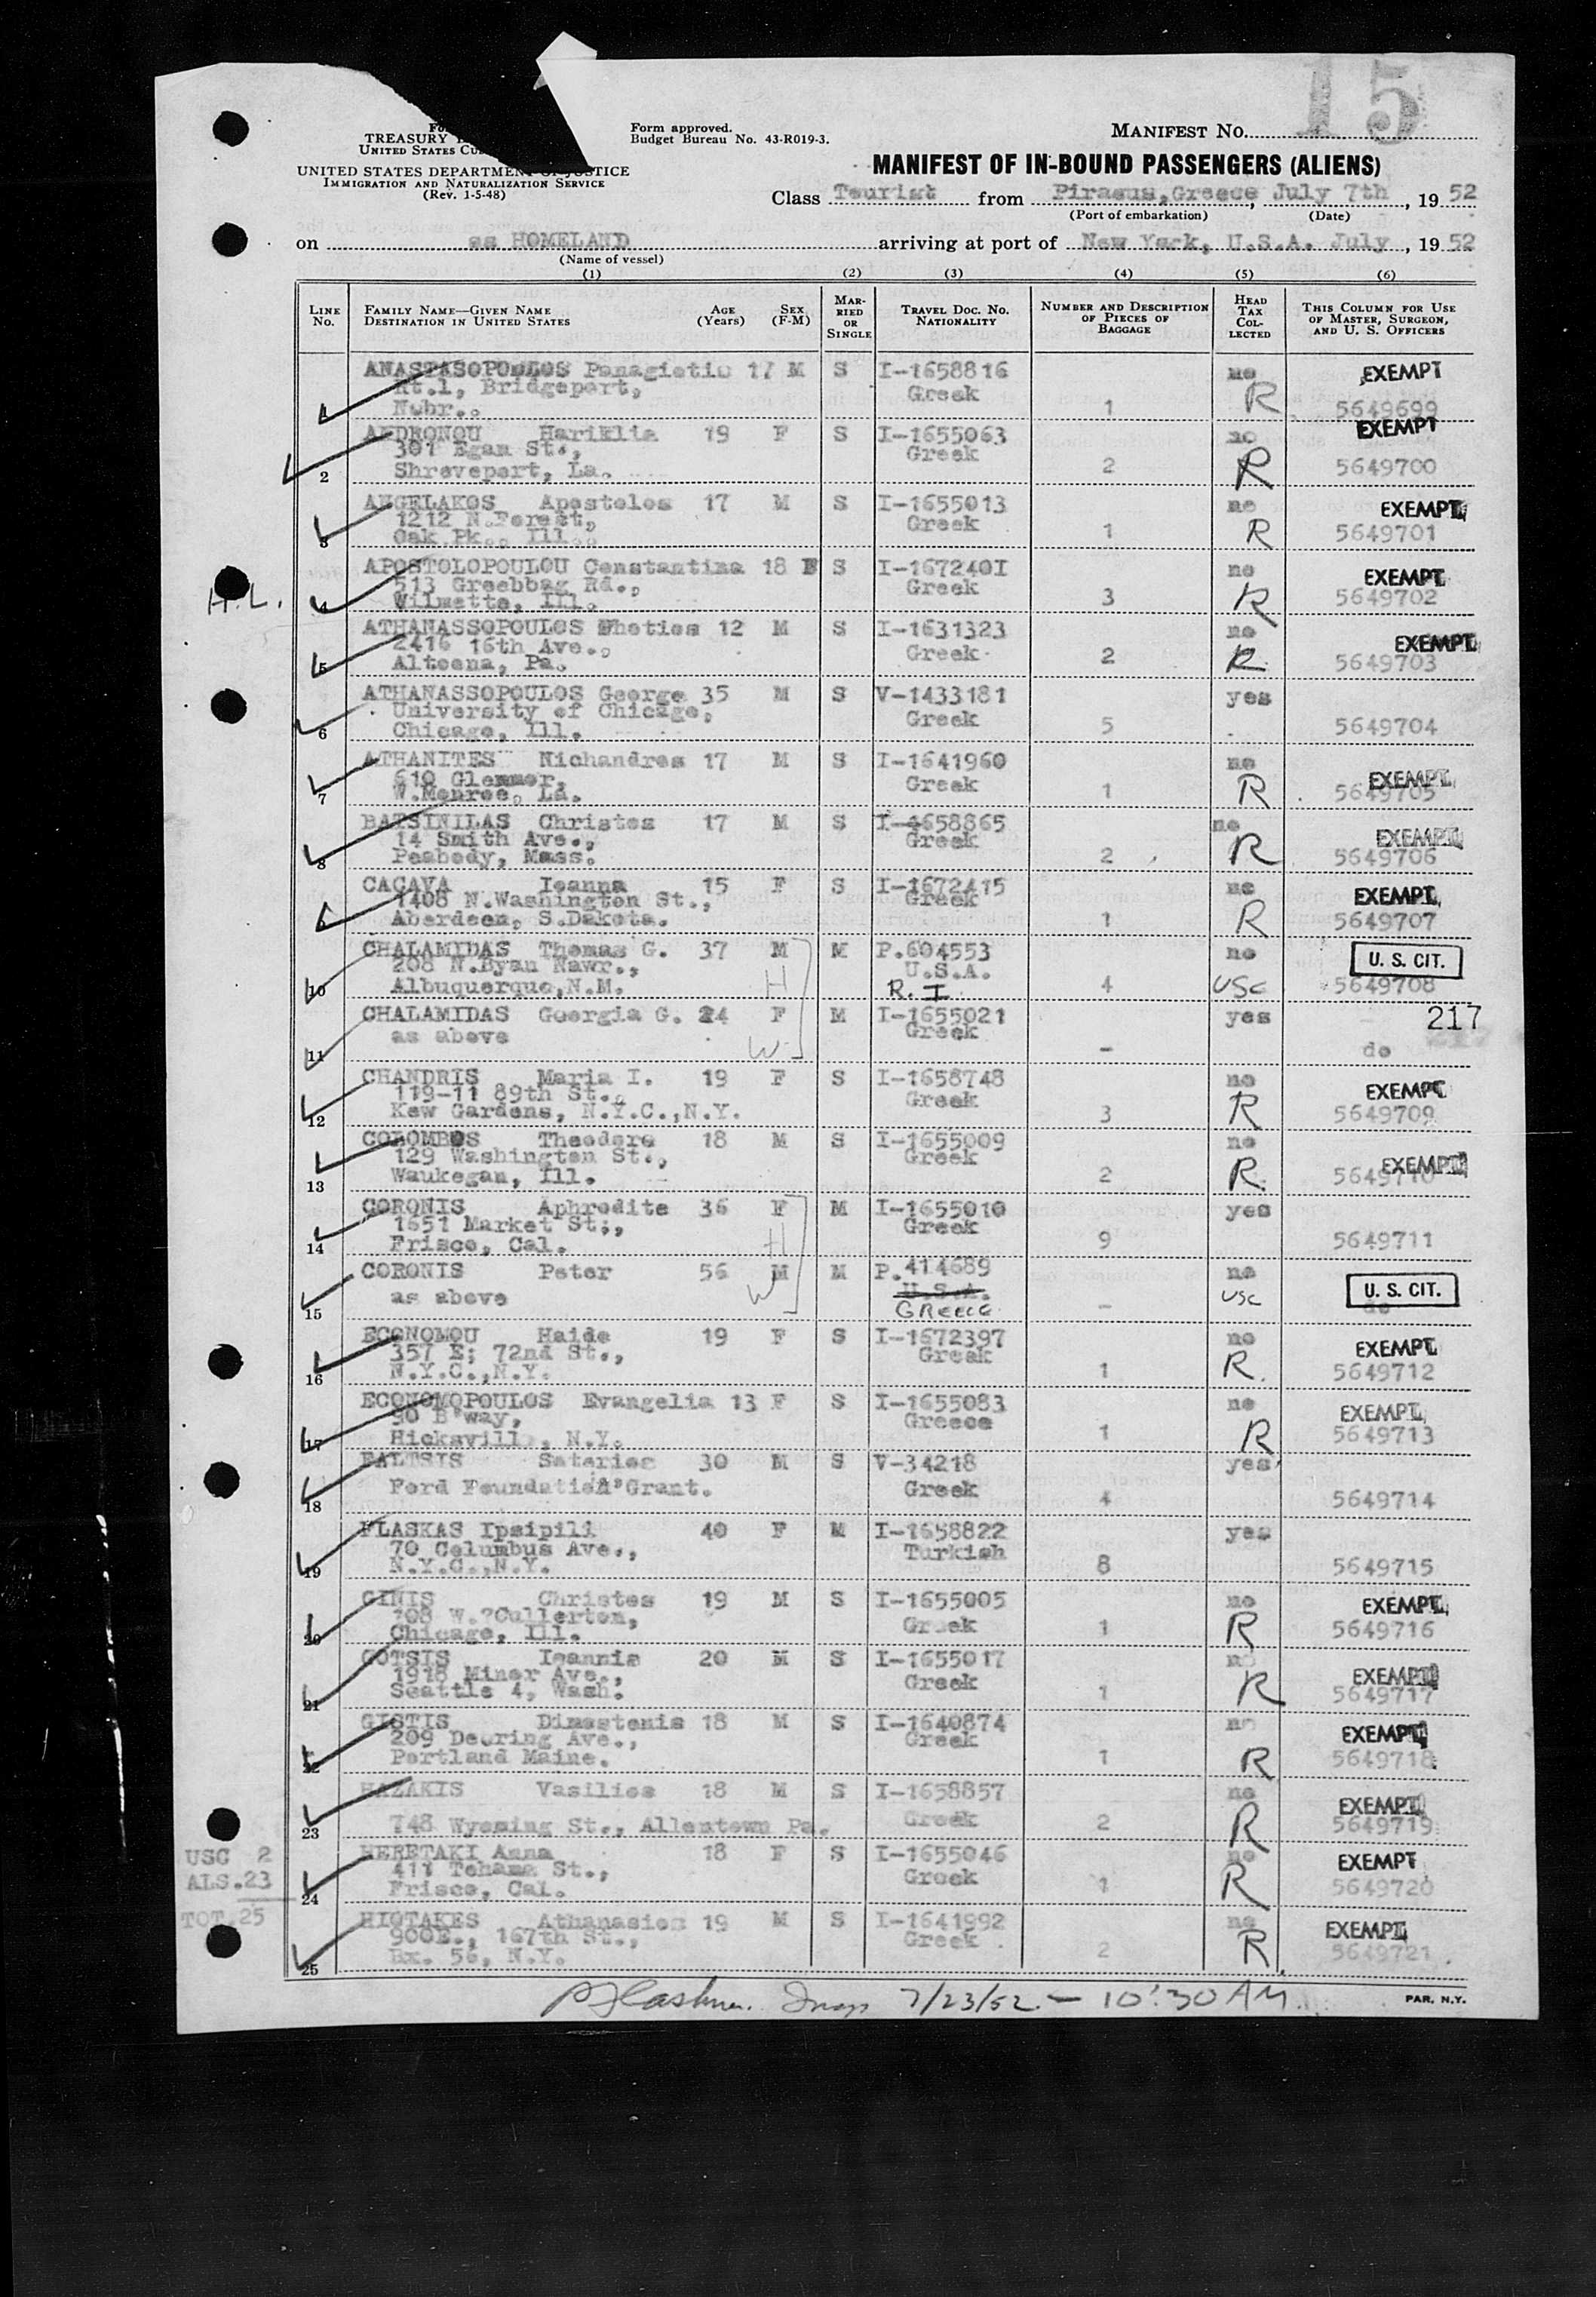 15
Form approved.
Budget Bureau No. 43-R019-3.
MANIFEST No.
TREASURY
UNITED STATES
UNITED STATES DEPARTMENT OF JUSTICE
IMMIGRATION AND NATURALIZATION SERVICE
(Rev. 1-5-48)
MANIFEST OF IN-BOUND PASSENGERS (ALIENS)
Class Tourist from Piraeus,Greece, July 7th, 1952
(Port of embarkation) (Date)
on ss HOMELAND arriving at port of New York, U.S.A. July, 1952
(Name of vessel)
(1) (2) (3) (4) (5) (6)
LINE No. FAMILY NAME—GIVEN NAME DESTINATION IN UNITED STATES AGE (Years) SEX (F-M) MARRIED OR SINGLE TRAVEL DOC. NO. NATIONALITY NUMBER AND DESCRIPTION OF PIECES OF BAGGAGE HEAD TAX COLLECTED THIS COLUMN FOR USE OF MASTER, SURGEON, AND U. S. OFFICERS
ANASTASOPOULOS Panagiotis 17 M S I-1658816 no EXEMPT
Rt.1, Bridgeport, Greek R
1 Nebr.. 1 5649699
ANDRONOU Hariklia 19 F S I-1655063 no EXEMPT
301 Egan St., Greek
2 Shreveport, La. 2 R 5649700
ANGELAKOS Apostolos 17 M S I-1655013 no EXEMPT
1212 N.Forest, Greek
3 Oak Pk., Ill.. 1 R 5649701
APOSTOLOPOULOU Constantina 18 F S I-1672401 no EXEMPT
513 Greebbag Rd., Greek
H.L. 4 Wilmette, Ill. 3 R 5649702
ATHANASSOPOULOS Photios 12 M S I-1631323 no EXEMPT
2416 16th Ave., Greek
5 Altoona, Pa. 2 R 5649703
ATHANASSOPOULOS George 35 M S V-1433181 yes
University of Chicago, Greek
6 Chicago, Ill. 5 5649704
ATHANITES Nichandros 17 M S I-1641960 no EXEMPT
610 Glenmor, Greek
7 W.Monroe, La. 1 R 5649705
BATSINILAS Christos 17 M S I-1658865 no EXEMPT
14 Smith Ave., Greek
8 Peabody, Mass. 2 R 5649706
CACAVA Ioanna 15 F S I-1672415 no EXEMPT
1408 N.Washington St., Greek
9 Aberdeen, S.Dakota. 1 R 5649707
CHALAMIDAS Thomas G. 37 M M P.604553 no U. S. CIT.
208 N.Byan Nawr., U.S.A.
10 Albuquerque,N.M. H R. I 4 USC 5649708
CHALAMIDAS Georgia G. 24 F M I-1655021 yes 217
as above Greek
11 W - do
CHANDRIS Maria I. 19 F S I-1658748 no EXEMPT
119-11 89th St., Greek
12 Kew Gardens, N.Y.C.,N.Y. 3 R 5649709
COLOMBOS Theodore 18 M S I-1655009 no EXEMPT
129 Washington St., Greek
13 Waukegan, Ill. 2 R 5649710
CORONIS Aphrodite 36 F M I-1655010 yes
1651 Market St., Greek
14 Frisco, Cal. H 9 5649711
CORONIS Peter 56 M M P.414689 no U. S. CIT.
as above W U.S.A. USC
15 GREECE - do
ECONOMOU Haido 19 F S I-1672397 no EXEMPT
357 E; 72nd St., Greek
16 N.Y.C.,N.Y. 1 R. 5649712
ECONOMOPOULOS Evangelia 13 F S I-1655083 no EXEMPT
90 B'way, Greece
17 Hicksvill , N.Y. 1 R 5649713
FALTSIS Soterios 30 M S V-34218 yes
Ford Foundation Grant. Greek
18 4 5649714
FLASKAS Ipsipili 40 F M I-1658822 yes
70 Columbus Ave., Turkish
19 N.Y.C.,N.Y. 8 5649715
GINIS Christos 19 M S I-1655005 no EXEMPT
708 W.?Cullerton, Greek
20 Chicago, Ill. 1 R 5649716
GOTSIS Ioannis 20 M S I-1655017 no EXEMPT
1918 Minor Ave., Greek
21 Seattle 4, Wash. 1 R 5649717
GIOTIS Dimostenis 18 M S I-1640874 no EXEMPT
209 Deering Ave., Greek
22 Portland Maine. 1 R 5649718
HAZAKIS Vasilios 18 M S I-1658857 no EXEMPT
23 748 Wyoming St., Allentown Pa. Greek 2 R 5649719
USC 2 HERETAKI Anna 18 F S I-1655046 no EXEMPT
ALS.23 411 Tehama St., Greek
24 Frisco, Cal. 1 R 5649720
TOT.25 HIOTAKES Athanasios 19 M S I-1641992 no EXEMPT
900E., 167th St., Greek
25 Bx. 56, N.Y. 2 R 5649721
7/23/52 - 10:30 AM.
PAR. N.Y.